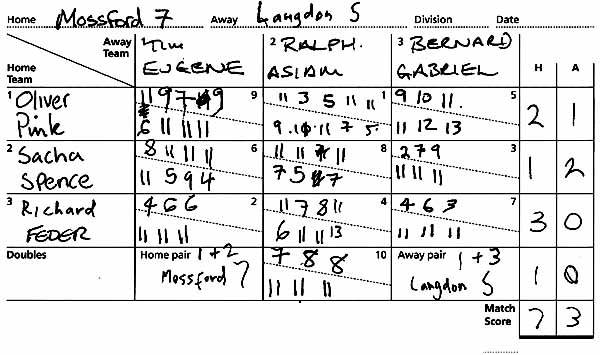 Home Mossford 7 Away Langdon 5 Division Date
Away Team 1 Tim 2 RALPH. 3 BERNARD
Home Team EUGENE ASLAM GABRIEL H A
1 Oliver 11 9 7 9 9 11 3 5 11 11 1 9 10 11. 5
Pink 6 11 11 11 9. 10. 11 7 5. 11 12 13 2 1
2 Sacha 8 11 11 11 6 11 11 7 11 8 2 7 9 3
Spence 11 5 9 4 7 5 7 11 11 11 1 2
3 Richard 4 6 6 2 11 7 8 11 4 4 6 3 7
FEDER 11 11 11 6 11 11 13 11 11 11 3 0
Doubles Home pair 1 + 2 7 8 8 10 Away pair 1 + 3
Mossford 7 11 11 11 Langdon 5 1 0
Match Score 7 3